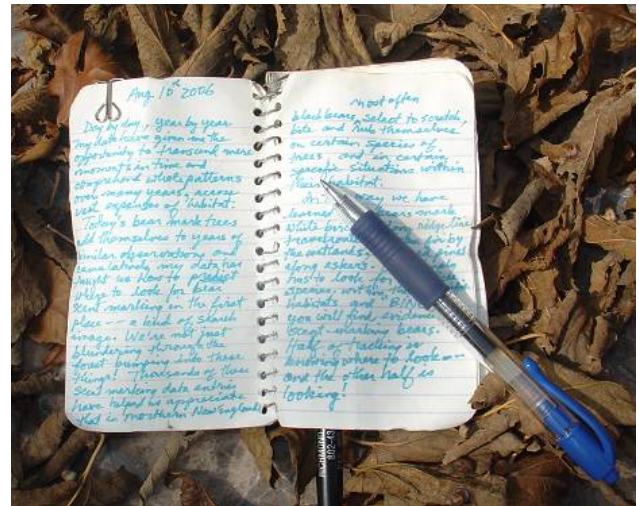 Aug 10th 2006
Day by day, year by year
my data have given me the
opportunity to transcend mere
moments in time and
comprehend whole patterns
over many years, across
vast expanses of habitat.
Today's bear mark trees
add themselves to years of
similar observations and
cumulatively, my data has
taught us how to predict
where to look for bear
scent marking in the first
place -- a kind of search
image. We're not just
blundering through the
forest bumping into these
things! Thousands of these
scent marking data entries
have helped us appreciate
that in northern New England
most often
black bears select to scratch,
bite and rub themselves
on certain species of
trees and in certain
specific situations within
their habitat.
In way we have
learned bears mark
white birch on ridgeline
fir by
the wetlands
along eskers.
look for
species
habitats and BIN
you will find eviden
scent marking bears.
Half of tracking is
knowing where to look --
and the other half is
looking!
RICHMOND
802-43